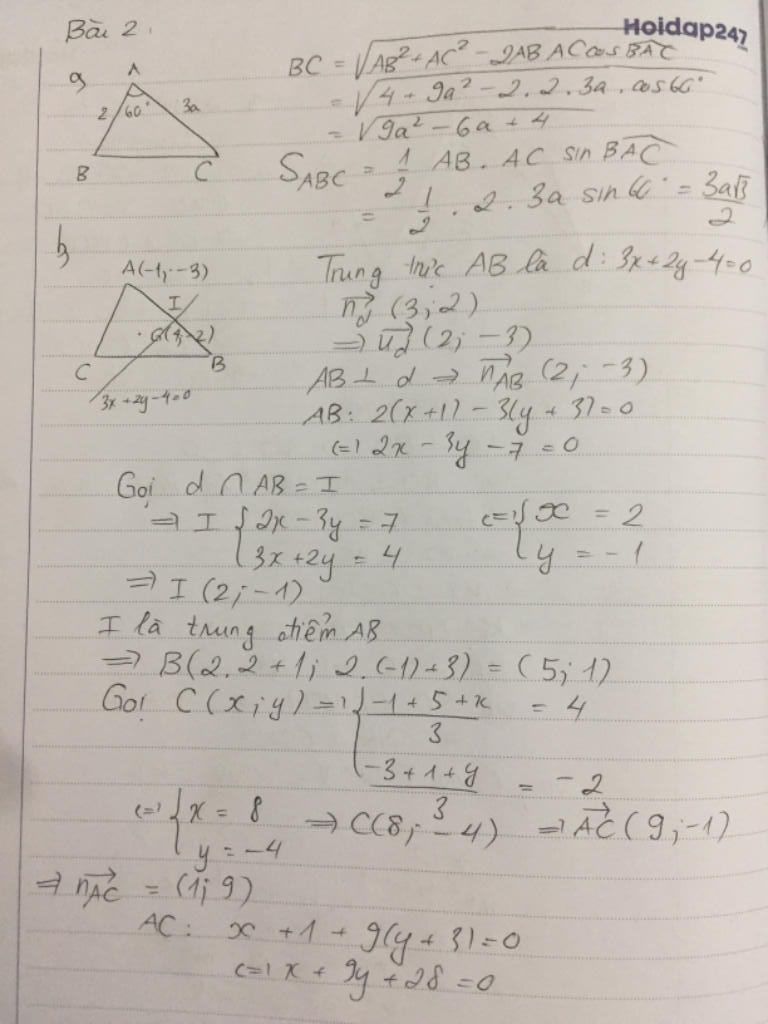 Bài 2.
Hoidap247
a,
A
2
60°
3a
B
C
BC = √(AB² + AC² - 2AB AC cos BAC)
= √(4 + 9a² - 2.2.3a.cos60°)
= √(9a² - 6a + 4)
S_ABC = 1/2 AB. AC sin BAC
= 1/2 . 2 . 3a sin 60° = 3a√3/2
b,
A(-1; -3)
I
G(4; -2)
C
B
3x+2y-4=0
Trung trực AB là d: 3x+2y-4=0
n_d→ (3; 2)
=> u_d→ (2; -3)
AB ⊥ d => n_AB→ (2; -3)
AB: 2(x+1) - 3(y+3) = 0
<=> 2x - 3y - 7 = 0
Gọi d ∩ AB = I
=> I { 2x - 3y = 7 <=> { x = 2
3x + 2y = 4 y = -1
=> I (2; -1)
I là trung điểm AB
=> B(2.2 + 1; 2.(-1)+3) = (5; 1)
Gọi C(x; y) => { (-1 + 5 + x)/3 = 4
(-3 + 1 + y)/3 = -2
<=> { x = 8 => C(8; -4) => AC→ (9; -1)
y = -4
=> n_AC→ = (1; 9)
AC: x + 1 + 9(y + 3) = 0
<=> x + 9y + 28 = 0